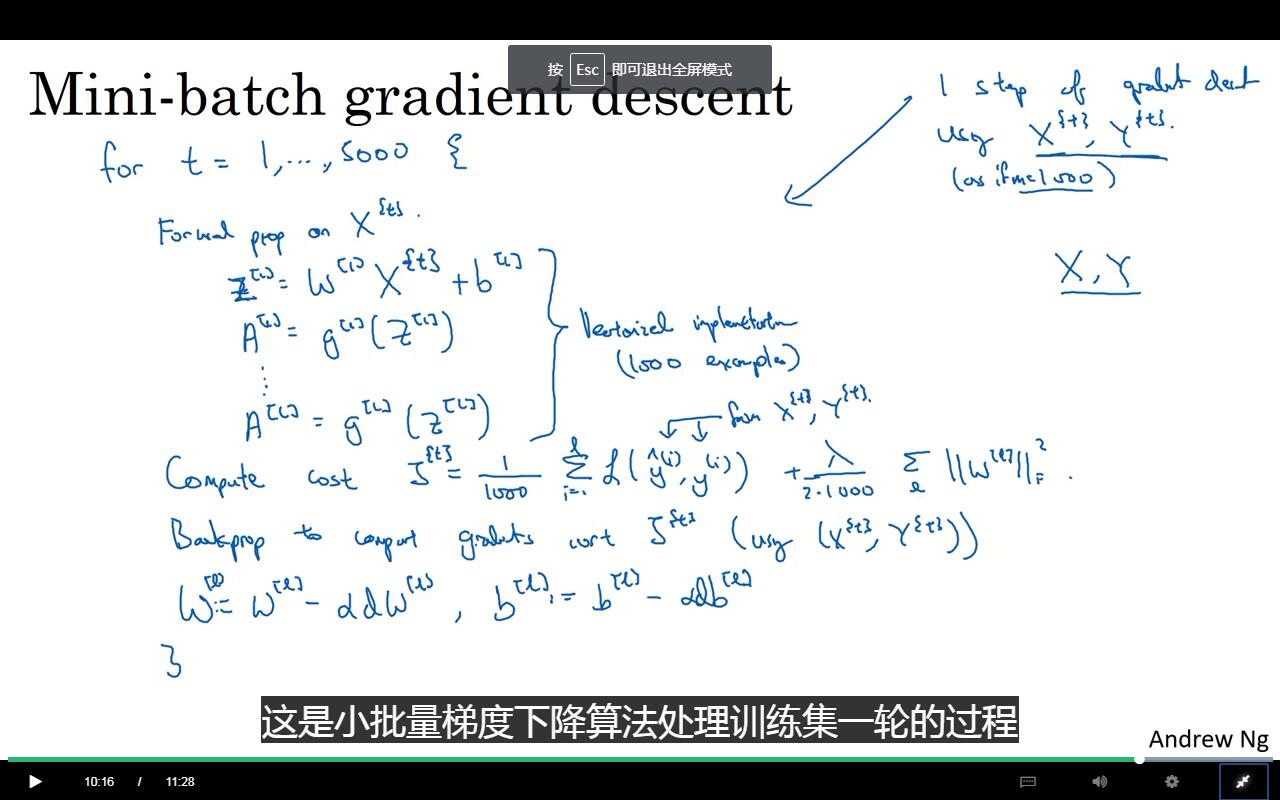 按 Esc 即可退出全屏模式
Mini-batch gradient descent
1 step of gradient descent
using X^{t}, Y^{t}.
(as if m=1000)
for t = 1,...,5000 {
Forward prop on X^{t}.
X, Y
Z^[1] = W^[1] X^{t} + b^[1]
A^[1] = g^[1](Z^[1])
Vectorized implementation
(1000 examples)
⋮
A^[L] = g^[L](Z^[L])
from X^{t}, Y^{t}.
Compute cost J^{t} = 1/1000 Σ_{i=1}^{l} L(ŷ^(i), y^(i)) + λ/(2·1000) Σ_l ||W^[l]||_F^2.
Backprop to compute gradients wrt J^{t} (using (X^{t}, Y^{t}))
W^[l] := W^[l] - αdW^[l], b^[l] := b^[l] - αdb^[l]
}
这是小批量梯度下降算法处理训练集一轮的过程
Andrew Ng
10:16 / 11:28